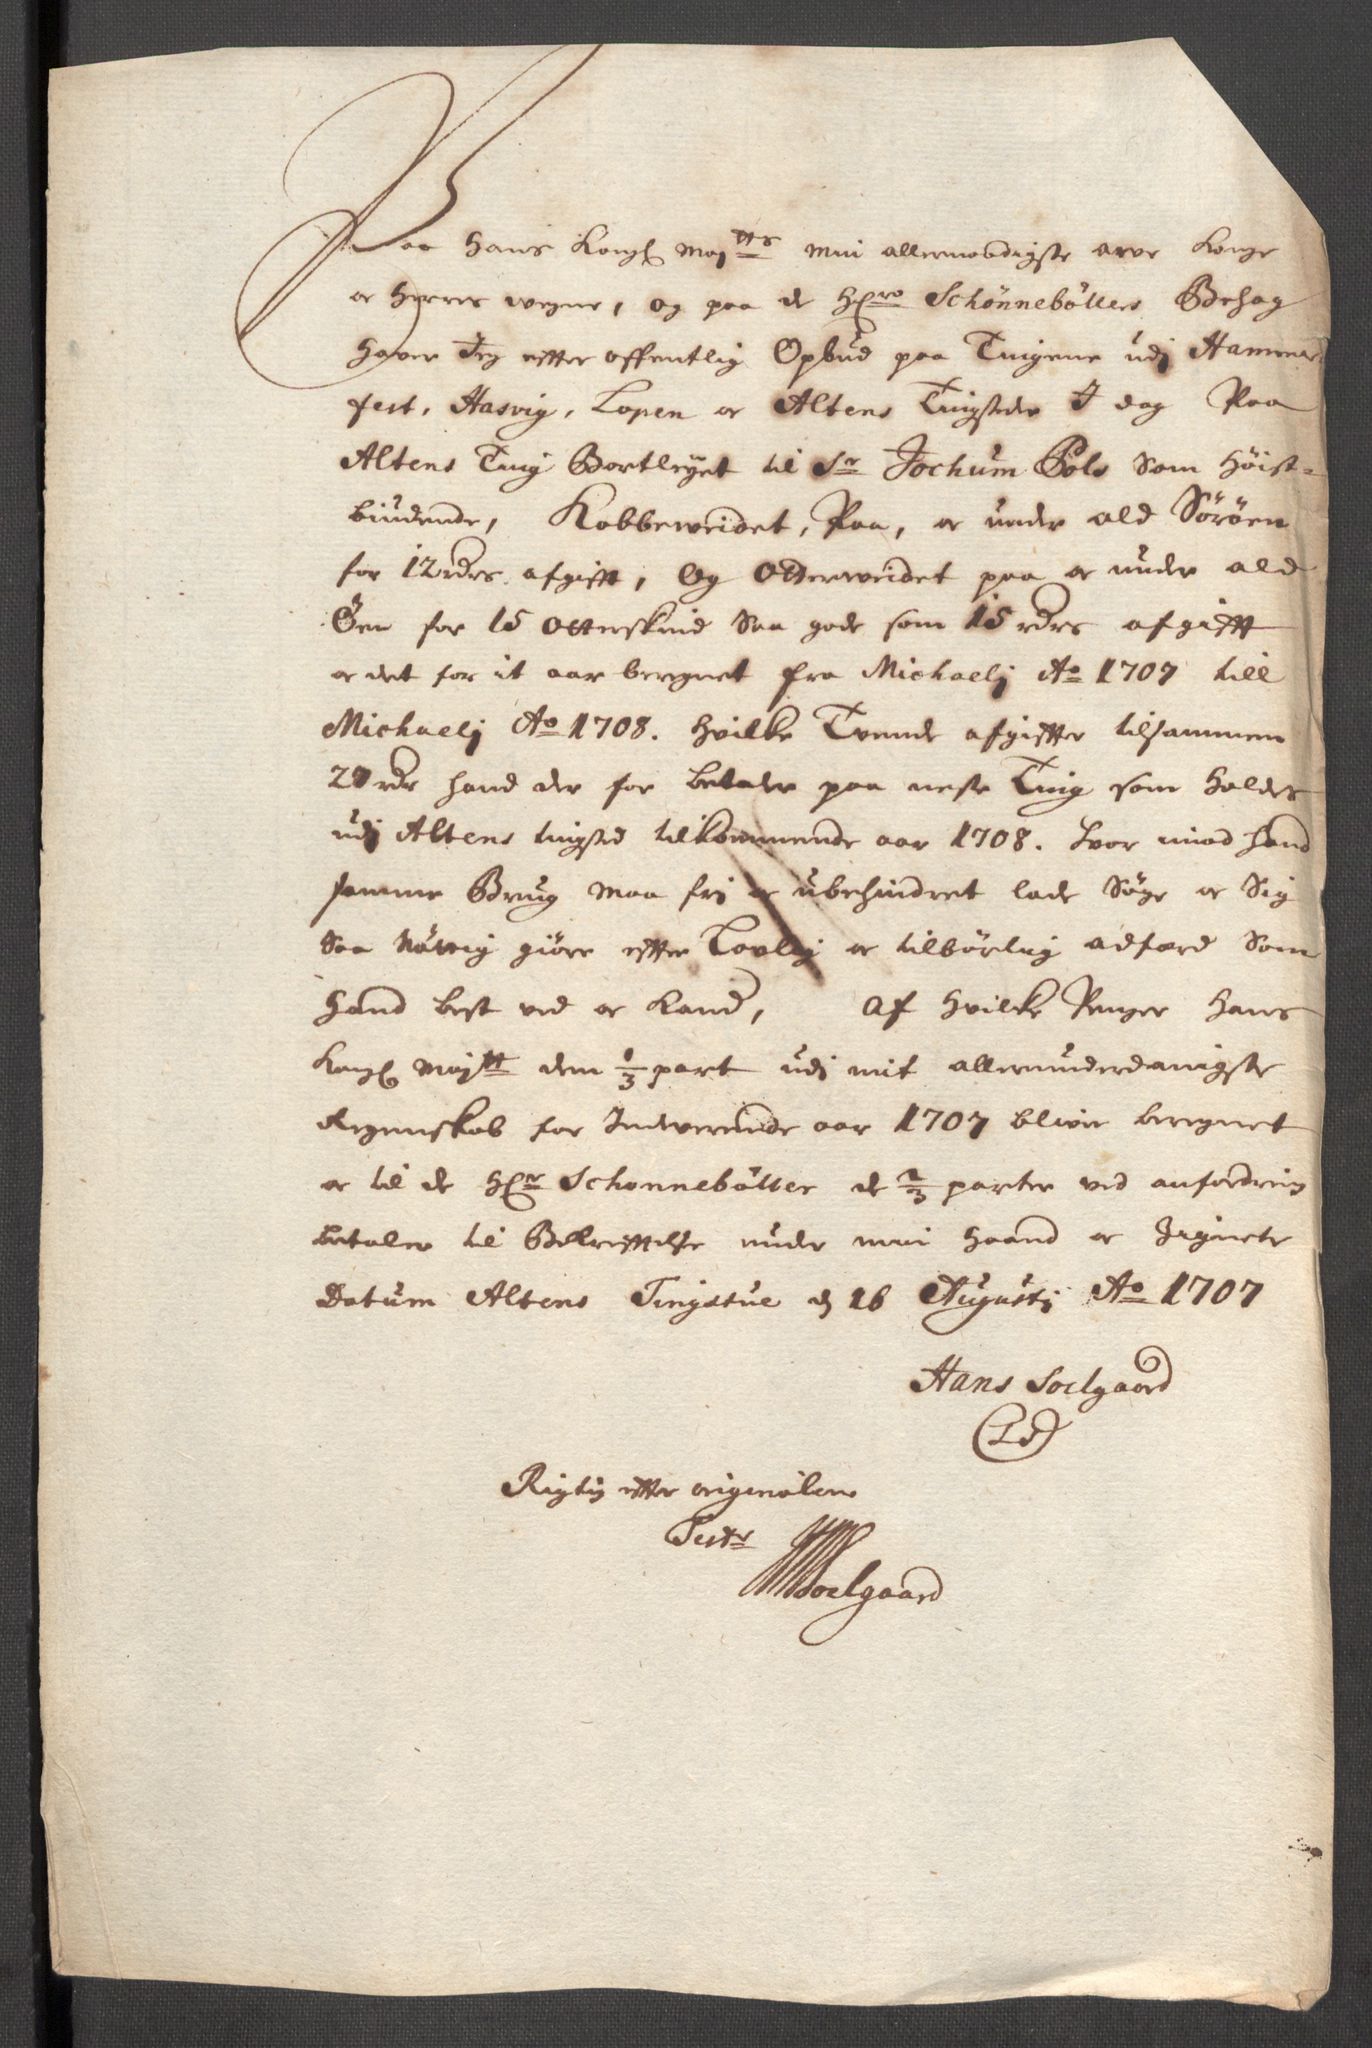 Paa Hans Kongl Majtts min allernaadigste arve Konge
oc Herres wegne, og paa de Hrrs Schønnebøllers Behag
haver Jeg efter offentlig Opbud paa Tingene udj Hammer
fest, Hasvig, Lopen oc Altens Tingsteder I dag Paa
Altens Ting Bortleyet til Sr Jochum Pols Som höist=
biudende, Kobbeweidet, Paa, oc under ald Söröen
for 12 rdrs afgifft, Og Otterweidet paa oc under ald
Öen for 15 Otterskind Saa gode som 15 rdrs afgifft
oc det for it aar beregnet fra Michaelj Ao 1707 till
Michaelj Ao 1708. Hvilke Tvende afgiffter tilsammen
27 rdr hand der for betaler paa neste Ting som Holdes
udj Altens tingsted tilkommende aar 1708. hvor imod hand
samme Brug maa frj oc ubehindret lade Søge oc Sig
Saa Nøttig giøre effter Lovlig oc tilbørlig adfærd Som
Hand best ved oc Kand, Af Hvilke Penger Hans
Kongl Majtt dem 1/3 part udj mit allerunderdanigste
Regenskab for Indeverende aar 1707 bliver beregnet
oc til de Hrr Schønnebøller de 2/3 parter ved anfordring
betaler til Bekrefftelse under min Haand oc Zignete
Datum Altens Tingstue d 16 Augustj Ao 1707
Hans Soelgaard
(LS)
Rigtig effter originalen
Testr
HSoelgaard